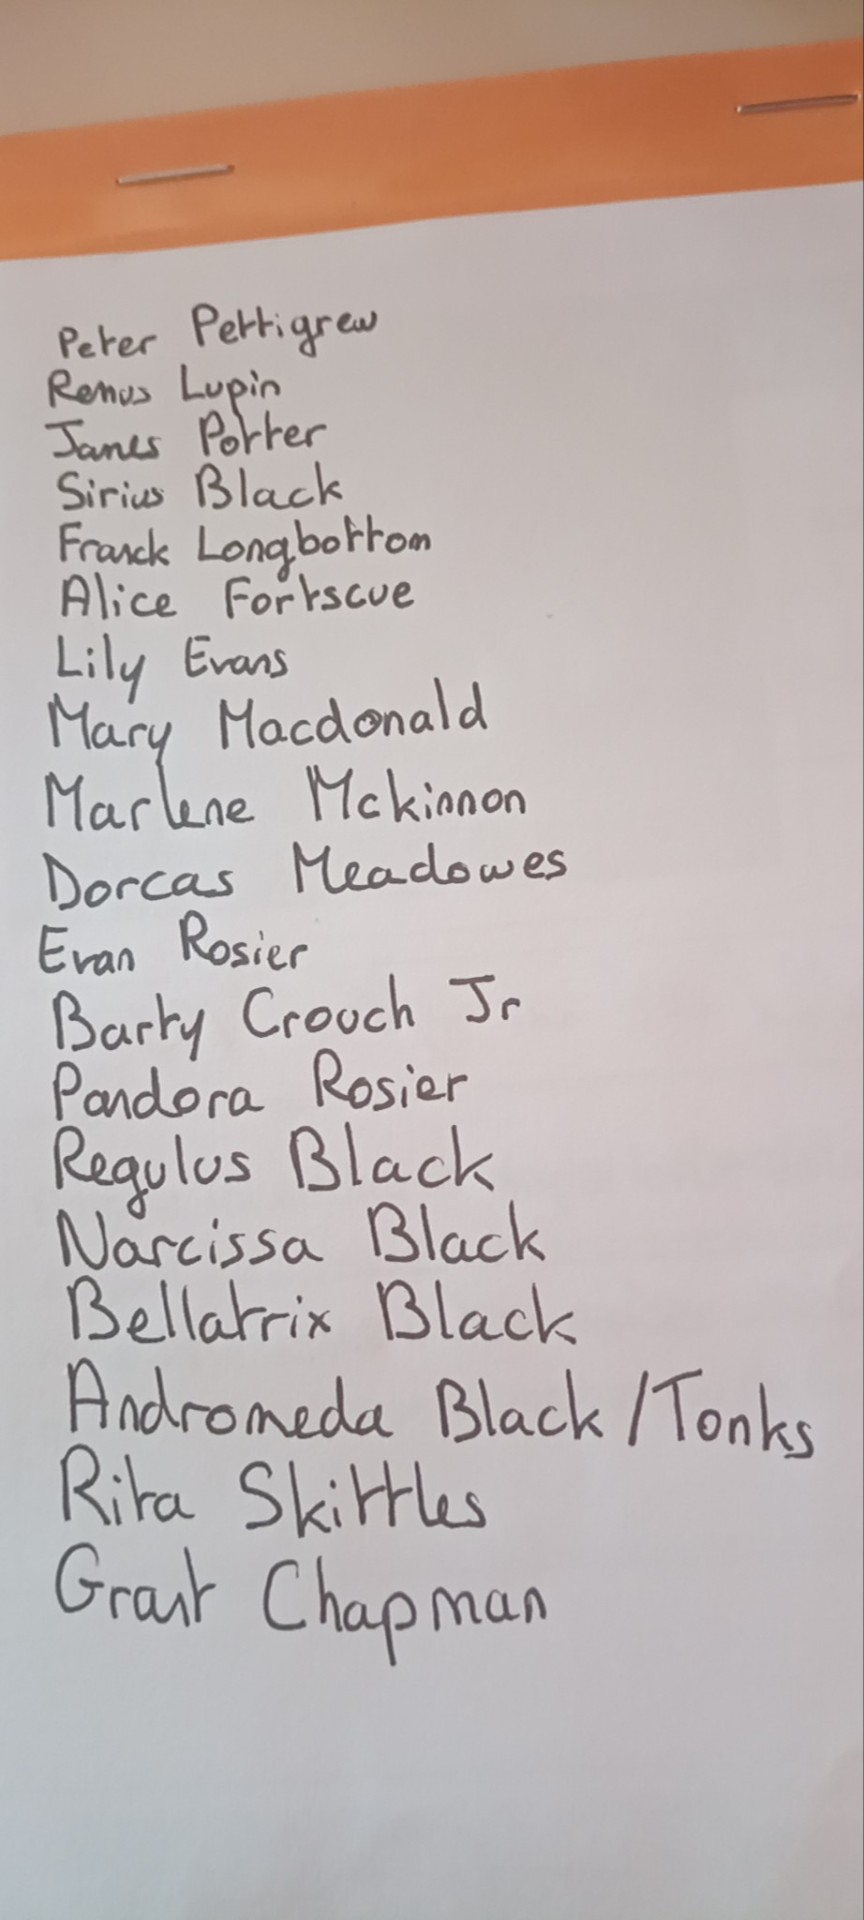 Peter Pettigrew
Remus Lupin
James Potter
Sirius Black
Franck Longbottom
Alice Fortscue
Lily Evans
Mary Macdonald
Marlene Mckinnon
Dorcas Meadowes
Evan Rosier
Barty Crouch Jr
Pandora Rosier
Regulus Black
Narcissa Black
Bellatrix Black
Andromeda Black/Tonks
Rita Skittles
Grant Chapman